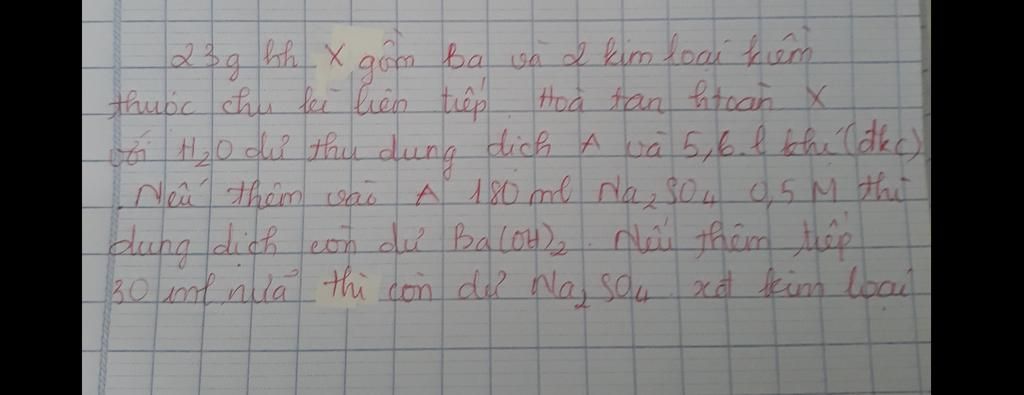 23g hh X gồm Ba và 2 kim loại kiềm
thuộc chu kì liên tiếp. Hoà tan htoàn X
với H₂O dư thu dung dịch A và 5,6 l khí (đkc)
. Nếu thêm vào A 180 ml Na₂SO₄ 0,5 M thì
dung dịch còn dư Ba(OH)₂. Nếu thêm tiếp
30 ml nữa thì còn dư Na₂SO₄. xđ kim loại